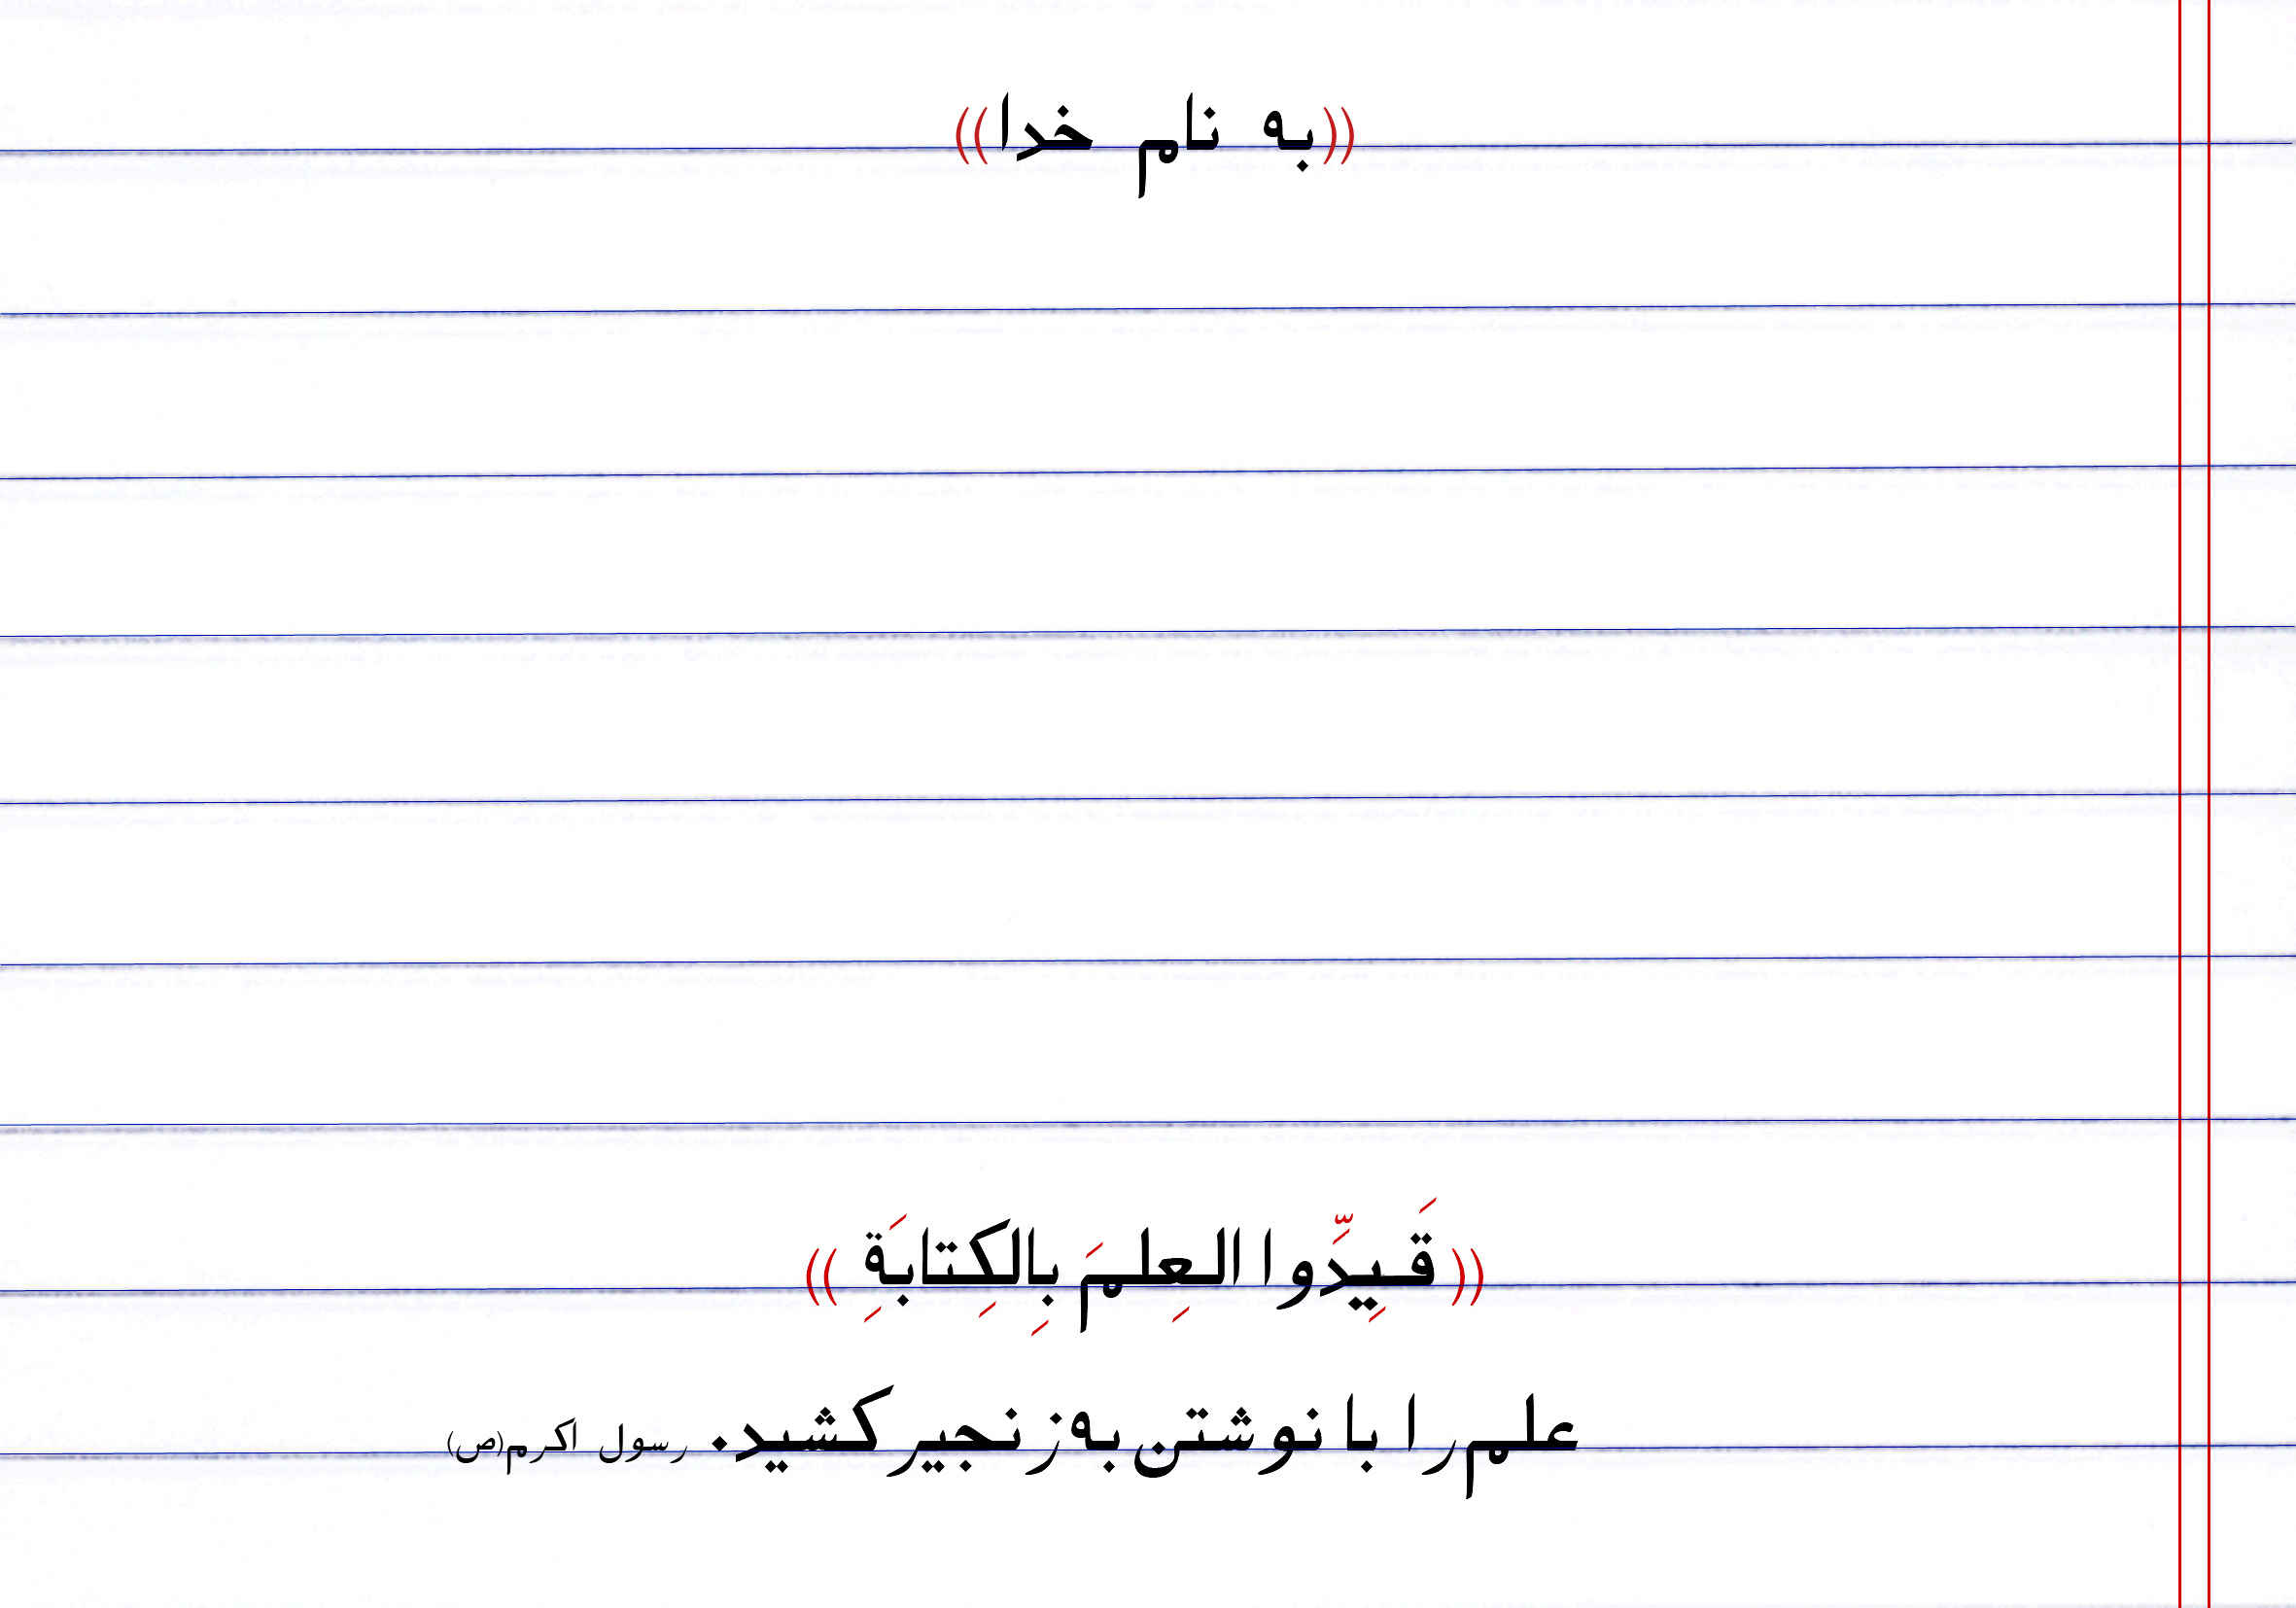 ((به نام خدا))
((قَیِدِّوا العِلمَ بِالکِتابَةِ))
علم را با نوشتن به زنجیر کشید. رسول اکرم(ص)